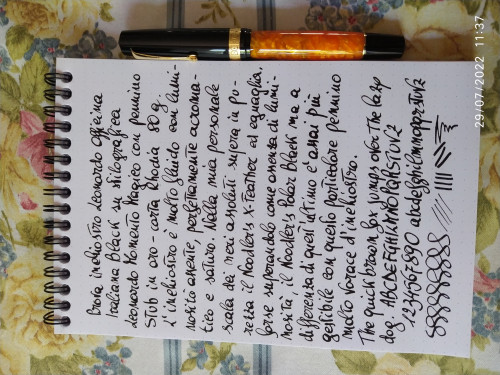 Prova inchiostro Leonardo Officina
Italiana Black su stilografica
Leonardo Momento Magico con pennino
Stub in oro - carta Rhodia 80 g.
L'inchiostro è molto fluido con lumi-
nosità assente, perfettamente acroma-
tico e saturo. Nella mia personale
scala dei neri assoluti supera in pu-
rezza il Noodler's X-Feather ed eguaglia,
forse superandolo come assenza di lumi-
nosità il Noodler's Polar Black ma a
differenza di quest'ultimo è assai più
gestibile con questo particolare pennino
molto vorace d'inchiostro.
The quick brown fox jumps over the lazy
dog. ABCDEFGHILMNOPQRSTUVZ
1234567890 abcdefghilmnopqrstuvz
29/07/2022 11:37